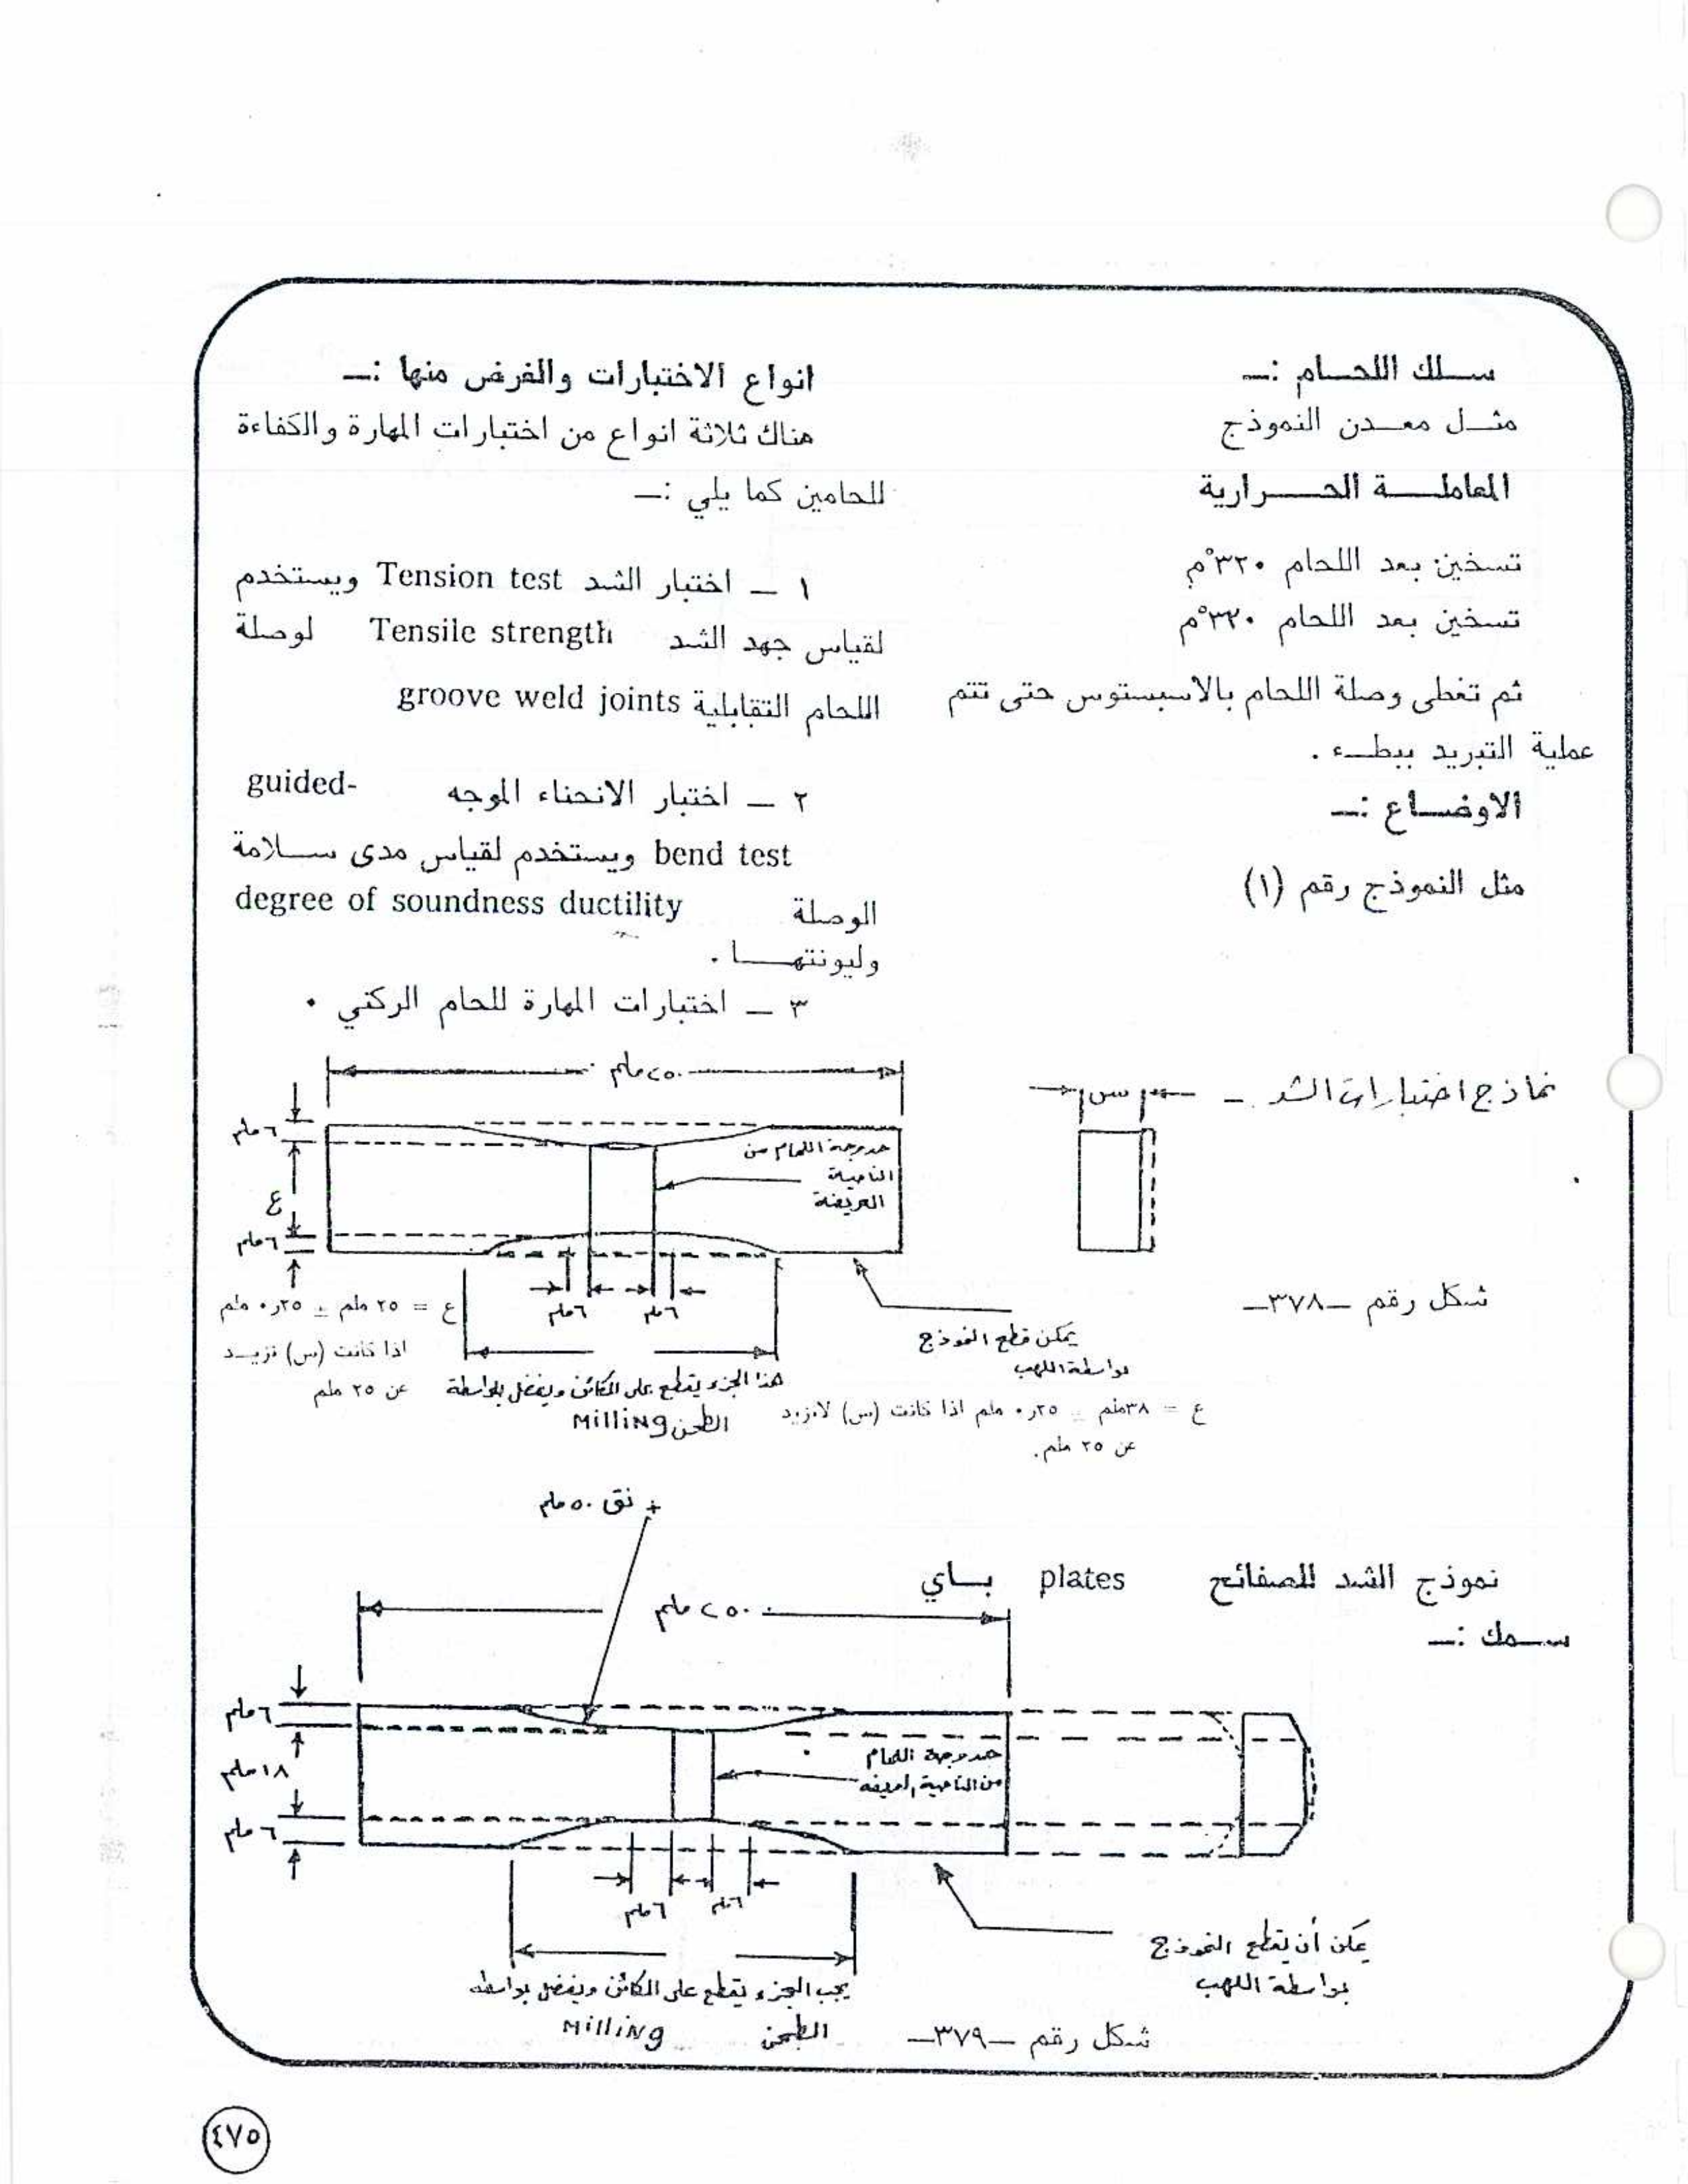 سلك اللحام :ـ
مثل معدن النموذج
المعاملة الحرارية
تسخين بعد اللحام ٣٢٠°م
تسخين بعد اللحام ٣٢٠°م
ثم تغطى وصلة اللحام بالاسبستوس حتى تتم
عملية التبريد ببطء .
الاوضاع :ـ
مثل النموذج رقم (١)
انواع الاختبارات والغرض منها :ـ
هناك ثلاثة انواع من اختبارات المهارة والكفاءة
للحامين كما يلي :ـ
١ ـ اختبار الشد Tension test ويستخدم
لقياس جهد الشد Tensile strength لوصلة
اللحام التقابلية groove weld joints
٢ ـ اختبار الانحناء الموجه guided-
bend test ويستخدم لقياس مدى سلامة
الوصلة degree of soundness ductility
وليونتها .
٣ ـ اختبارات المهارة للحام الركني .
نماذج اختبارات الشد ـ
س
٢٥٠ ملم
٦ ملم
ع
٦ ملم
حدوجهة اللحام من
الناحية
العريضة
٦ ملم
٦ ملم
شكل رقم ـ٣٧٨ـ
يمكن قطع النموذج
بواسطة اللهب
ع = ٢٥ ملم ± ٠٫٢٥ ملم
اذا كانت (س) تزيد
عن ٢٥ ملم
هذا الجزء يقطع على المكائن ويفضل بواسطة
الطحن Milling
ع = ٣٨ملم ± ٠٫٢٥ ملم اذا كانت (س) لاتزيد
عن ٢٥ ملم.
+ نق ٥٠ ملم
نموذج الشد للصفائح plates باي
سمك :ـ
٢٥٠ ملم
٦ ملم
١٨ ملم
٦ ملم
حدوجهة اللحام
من الناحية العريضة
٦ ملم
٦ ملم
يمكن أن يقطع النموذج
بواسطة اللهب
يجب الجزء يقطع على المكائن ويفضل بواسطة
الطحن Milling
شكل رقم ـ٣٧٩ـ
٤٧٥